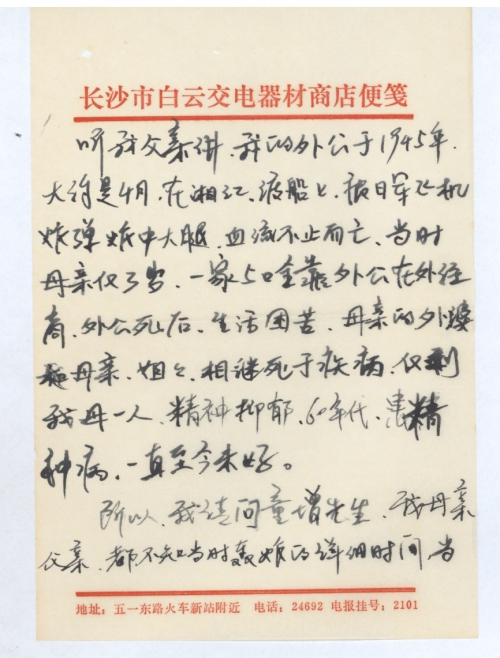 长沙市白云交电器材商店便笺
听我父亲讲，我的外公于1945年.
大约是4月，在湘江渡船上，被日军飞机
炸弹炸中大腿，血流不止而亡、当时
母亲仅3岁、一家5口全靠外公在外经
商、外公死后、生活困苦、母亲的外婆
母亲、姐姐、相继死于疾病、仅剩
我母一人、精神抑郁、60年代、患精
种病、一直至今未好。
所以、我请问童增先生、我母亲
父亲、都不知当时轰炸的详细时间、当
地址：五一东路火车新站附近 电话：24692 电报挂号：2101